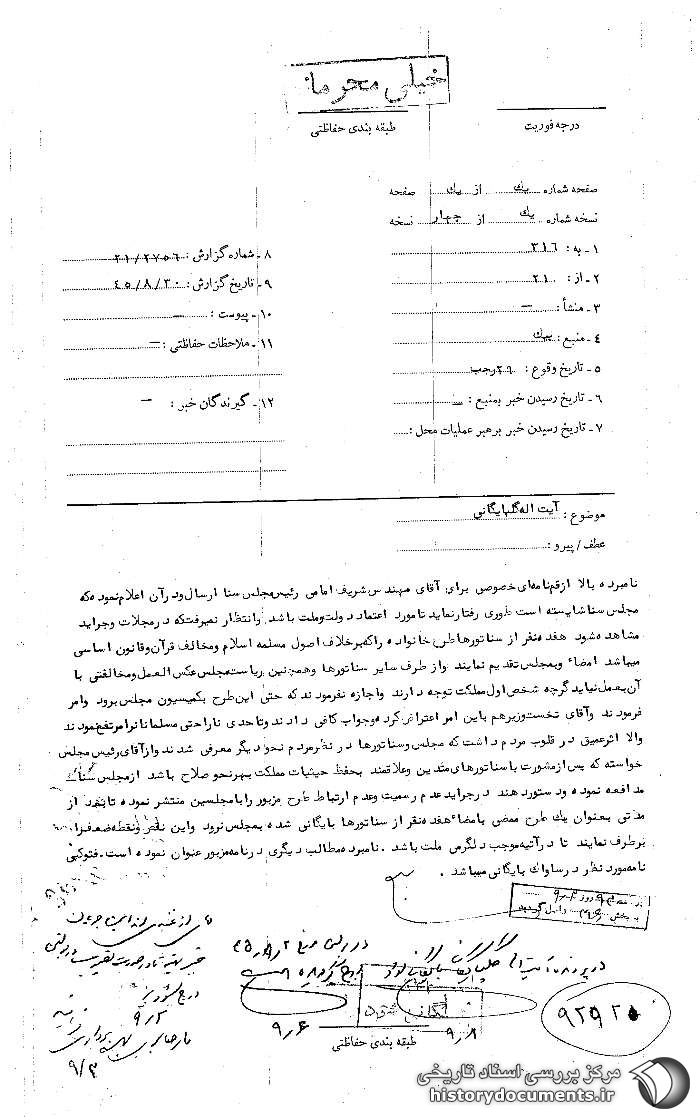 خیلی محرمانه
درجه فوریت
طبقه بندی حفاظتی
صفحه شماره يك از يك صفحه
نسخه شماره يك از چهار نسخه
۱ - به : ۳۱۶
۲ - از : ۲۱
۳ - منشأ : —
۴ - منبع : يك
۵ - تاریخ وقوع : ۲۹ رجب
۶ - تاریخ رسیدن خبر بمنبع : —
۷ - تاریخ رسیدن خبر برهبر عملیات محل :
۸ - شماره گزارش : ۲۱/۲۷۵۶
۹ - تاریخ گزارش : ۴۵/۸/۳۰
۱۰ - پیوست : —
۱۱ - ملاحظات حفاظتی : —
۱۲ - گیرندگان خبر : —
موضوع : آیت اله گلپایگانی
عطف / پیرو :
نامبرده بالا ازقم نامه‌ای خصوصی برای آقای مهندس شریف امامی رئیس مجلس سنا ارسال و درآن اعلام نموده که
مجلس سنا شایسته است طوری رفتار نماید تا مورد اعتماد دولت و ملت باشد و انتظار نمیرفت که در مجلات و جراید
مشاهده شود هفده نفر از سناتورها طرح خانواده را که برخلاف اصول مسلمه اسلام و مخالف قرآن و قانون اساسی
میباشد امضاء و بمجلس تقدیم نمایند و از طرف سایر سناتورها و همچنین ریاست مجلس عکس العمل و مخالفتی با
آن بعمل نیاید گرچه شخص اول مملکت توجه دارند و اجازه نفرمودند که حتی این طرح بکمیسیون مجلس برود و امر
فرمودند و آقای نخست وزیر هم باین امر اعتراض کرده و جواب کافی دادند و تا حدی ناراحتی مسلمانان را مرتفع نمودند
والا اثر عمیق در قلوب مردم داشت که مجلس و سناتورها در نظر مردم نحو دیگر معرفی شدند و از آقای رئیس مجلس
خواسته که پس از مشورت با سناتورهای متدین و علاقمند بحفظ حیثیات مملکت بهر نحو صلاح باشد از مجلس سنا
مدافعه نموده و دستور دهند در جراید عدم رسمیت و عدم ارتباط طرح مزبور را با مجلسین منتشر نموده تا بعد از
مدتی بعنوان يك طرح معضی با مضاء هفده نفر از سناتورها بایگانی شده بمجلس نرود و این نقص و نقطه ضعف را
برطرف نمایند تا در آتیه موجب دلگرمی ملت باشد . نامبرده مطالب دیگری در نامه مزبور عنوان نموده است . فتوکپی
نامه مورد نظر در ساواك بایگانی میباشد .
در پرونده آیت اله گلپایگانی بایگانی شود
۹/۸
۹/۶
۹/۲
۹/۳
۹۲۹۲۵
بایگانی شود
طبقه بندی حفاظتی
مرکز بررسی اسناد تاریخی
historydocuments.ir